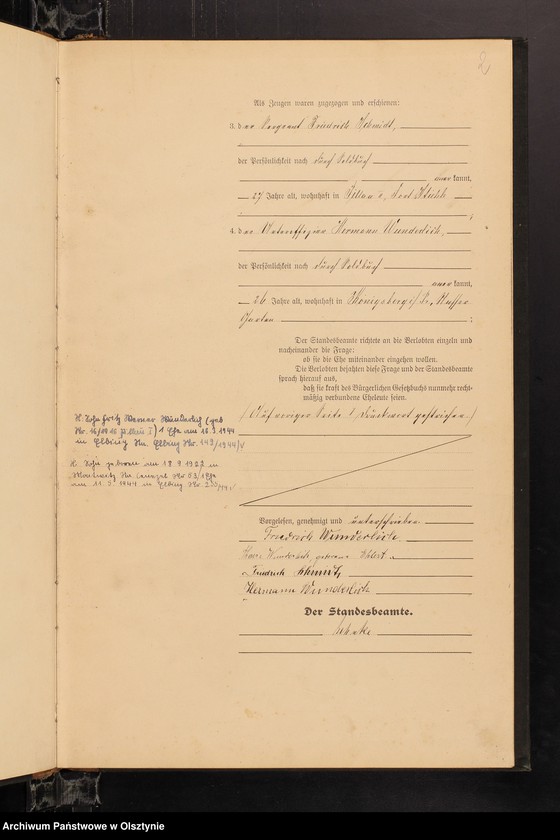 2
Als Zeugen waren zugezogen und erschienen:
3. der Sergeant Friedrich Schmidt,
der Persönlichkeit nach durch Soldbuch
anerkannt,
27 Jahre alt, wohnhaft in Pillau
4. der Unteroffizier Hermann Wunderlich,
der Persönlichkeit nach durch Soldbuch
anerkannt,
26 Jahre alt, wohnhaft in Königsberg i/Pr.
Garten ;
Der Standesbeamte richtete an die Verlobten einzeln und
nacheinander die Frage:
ob sie die Ehe miteinander eingehen wollen.
Die Verlobten bejahten diese Frage und der Standesbeamte
sprach hierauf aus,
daß sie kraft des Bürgerlichen Gesetzbuchs nunmehr recht-
mäßig verbundene Eheleute seien.
(Auf voriger Seite 1 Druckwort gestrichen.)
Sohn Fritz Werner Wunderlich (geb
Nr. 16/1916 1 Ehe am 18.9.1944
in Elbing Nr. Elbing Nr. 149/1944)
Sohn geboren am 18.9.1922 in
Nr 53 / Ehe
am 11.3.1944 in Elbing Nr.
Vorgelesen, genehmigt und unterschrieben
Friedrich Wunderlich
Wunderlich, geborene Ehlert
Friedrich Schmidt
Hermann Wunderlich
Der Standesbeamte.
Archiwum Państwowe w Olsztynie